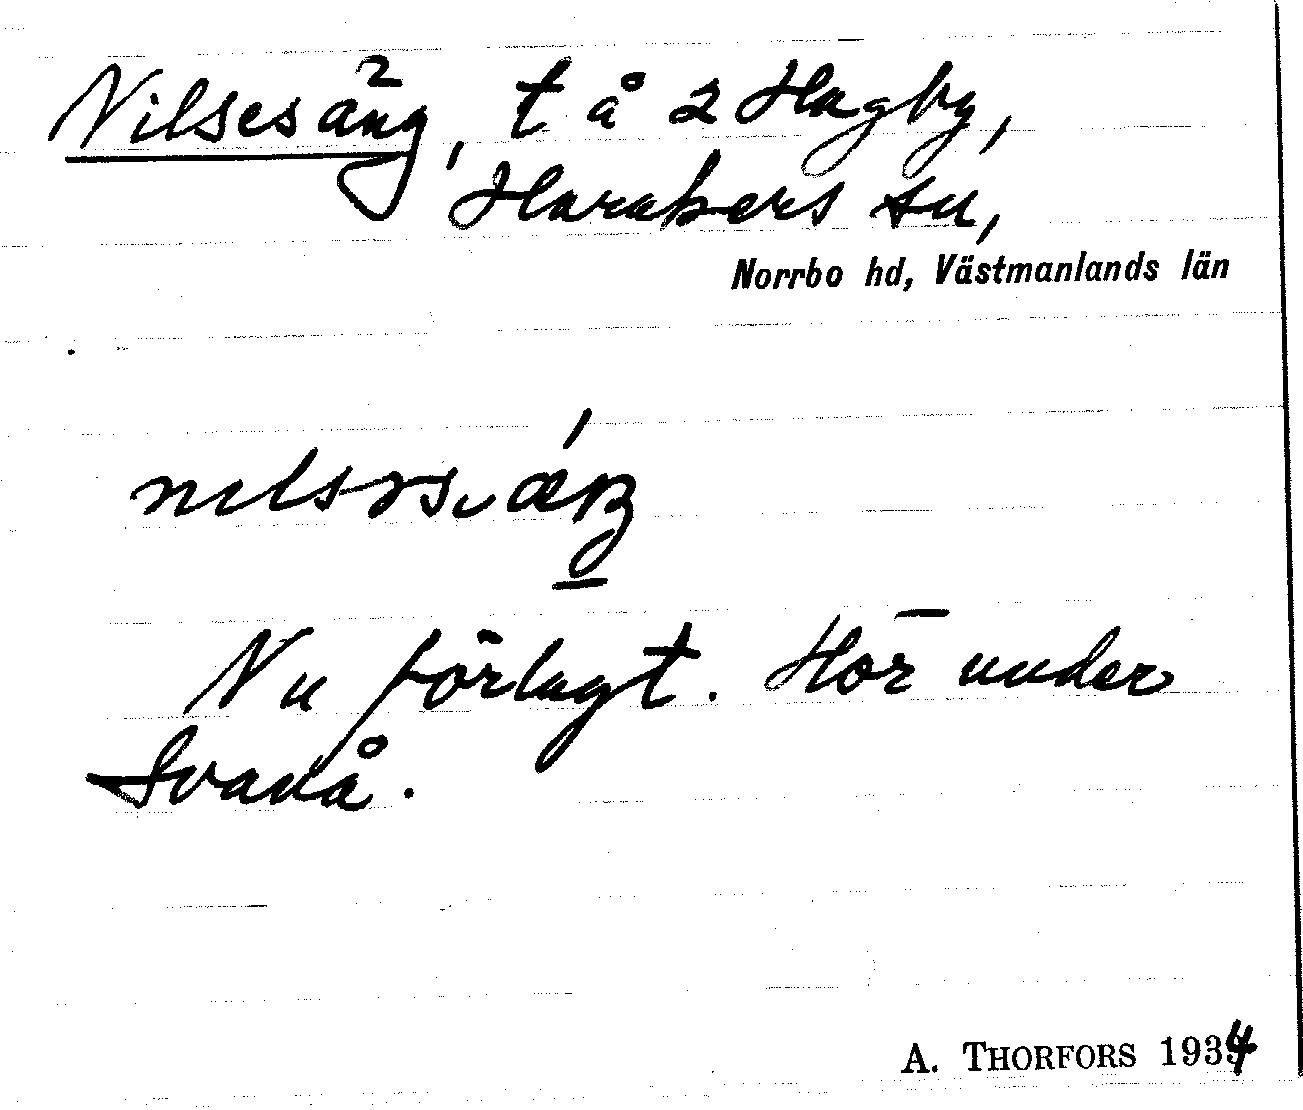 Nilsesäng, t å 2 Hagby,
Harakers sn,
Norrbo hd, Västmanlands län
Nu förlagt. Hör under
Svanå.
A. THORFORS 1934